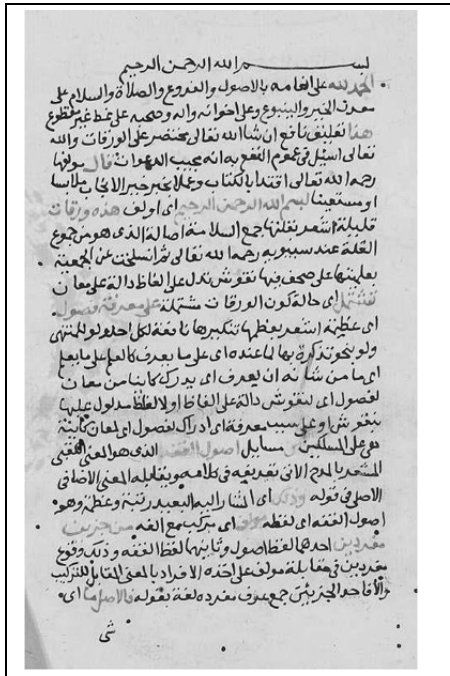 بسم الله الرحمن الرحيم
الحمد لله على انعامه بالاصول والفروع والصلاة والسلام على
معدن الخير والينبوع وعلى اخوانه واله وصحبه على نمط غير مقطوع
هذا تعليق نافع ان شا الله تعالى مختصر على الورقات والله
تعالى اسئل في عموم النفع به انه مجيب الدعوات قال مولفها
رحمه الله تعالى اقتدا بالكتاب وعملا بخبر خير الانجاب ملابسا
او مستعينا بسم الله الرحمن الرحيم اى اولف هذه ورقات
قليلة اشعر بقلتها جمع السلامة اصالة الذى هو من جموع
القلة عند سيبويه رحمه الله تعالى ثم انسلخت عن الجمعية
بعلميتها على صحف فيها نقوش تدل على الفاظ دالة على معان
تشتمل اى حالة كون الورقات مشتملة على معرفة فصول
اى عظيمة اشعر بعظمها تنكيرها نافعة لكل احد ولو للمنتهى
ولو بنحو تذكرة بها لما عنده اى على ما يعرف كالعلم على ما يعلم
اى ما من شانه ان يعرف اى يدرك كاينا من معان
لفصول اى لنقوش دالة على الفاظ اولا لفظ مدلول عليها
بنقوش او على سبب معرفة اى ادراك لفصول اى لمعان كاينية
هى على المسلكين من مسايل اصول الفقه الذى هو المعنى اللقبى
المشعر بالمدح الاتى تعريفه فى كلامه ويقابله المعنى الاضافى
الاصلى فى قوله وذلك اى المشار اليه البعيد رتبة وعظمة وهو
اصول الفقه اى لفظه مولف اى مركب مع الفه من جزين
مفردين احدهما لفظ اصول وثانيهما لفظ الفقه وذلك وقوع
مفردين فى مقابلة مولف على اخذه الافراد بالمعنى المقابل للتركيب
والا فاحد الجزين جمع عرف مفرده لغة بقوله فالاصل ما اى
شى